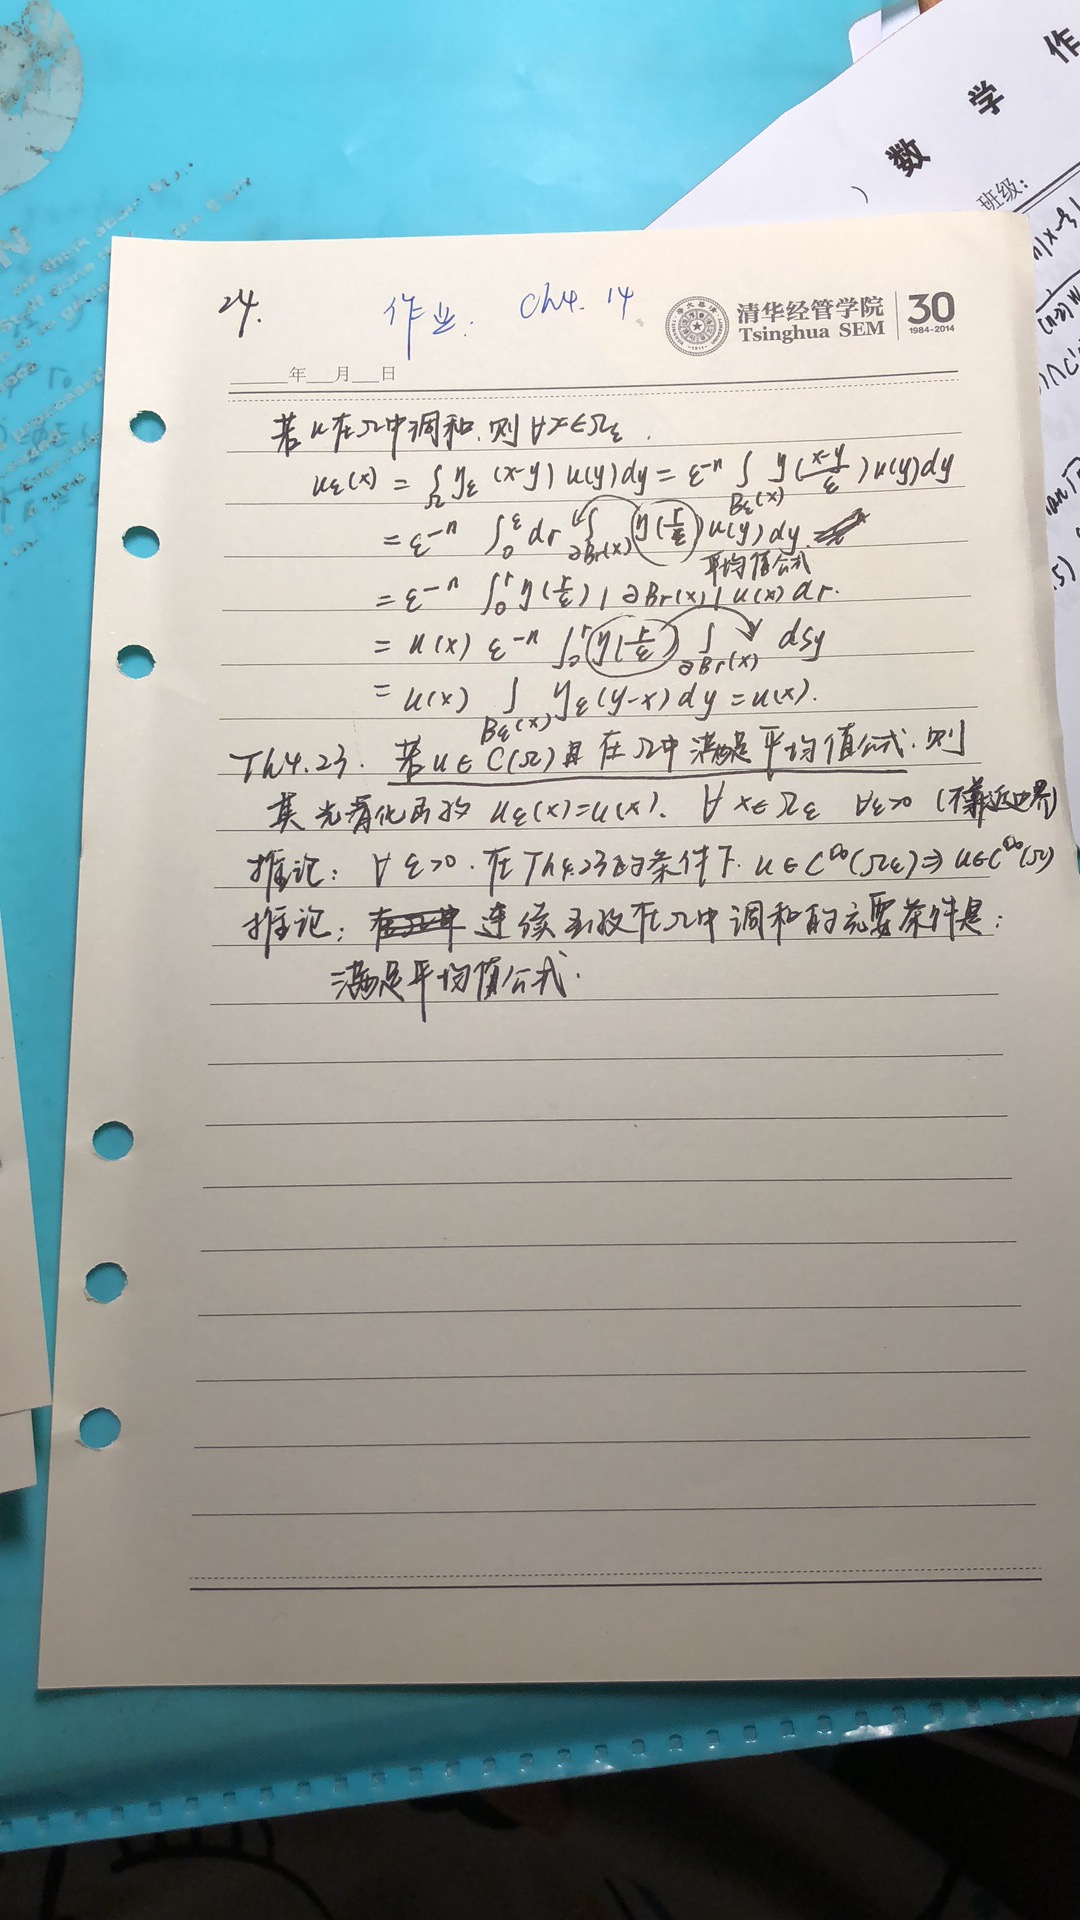 数 学 作
班级:
24.
作业. Ch4. 14
清华经管学院 30
Tsinghua SEM 1984-2014
年 月 日
若 u 在 Ω 中调和, 则 ∀x∈Ω_ε.
u_ε(x) = ∫_Ω η_ε (x-y) u(y) dy = ε^{-n} ∫_{B_ε(x)} η(\frac{x-y}{ε}) u(y) dy
= ε^{-n} ∫_0^ε dr ∫_{∂Br(x)} η(\frac{r}{ε}) u(y) dy.
平均值公式
= ε^{-n} ∫_0^r η(\frac{r}{ε}) |∂Br(x)| u(x) dr.
= u(x) ε^{-n} ∫_0^r η(\frac{r}{ε}) ∫_{∂Br(x)} dSy
= u(x) ∫_{B_ε(x)} η_ε(y-x) dy = u(x).
Th4.23. 若 u∈C(Ω) 且在 Ω 中满足平均值公式. 则
其光滑化函数 u_ε(x)=u(x). ∀ x∈Ω_ε ∀ε>0 (不靠近边界)
推论: ∀ ε>0. 在Th4.23的条件下. u∈C^∞(Ω_ε)⇒u∈C^∞(Ω)
推论: 连续函数在Ω中调和的充要条件是:
满足平均值公式.